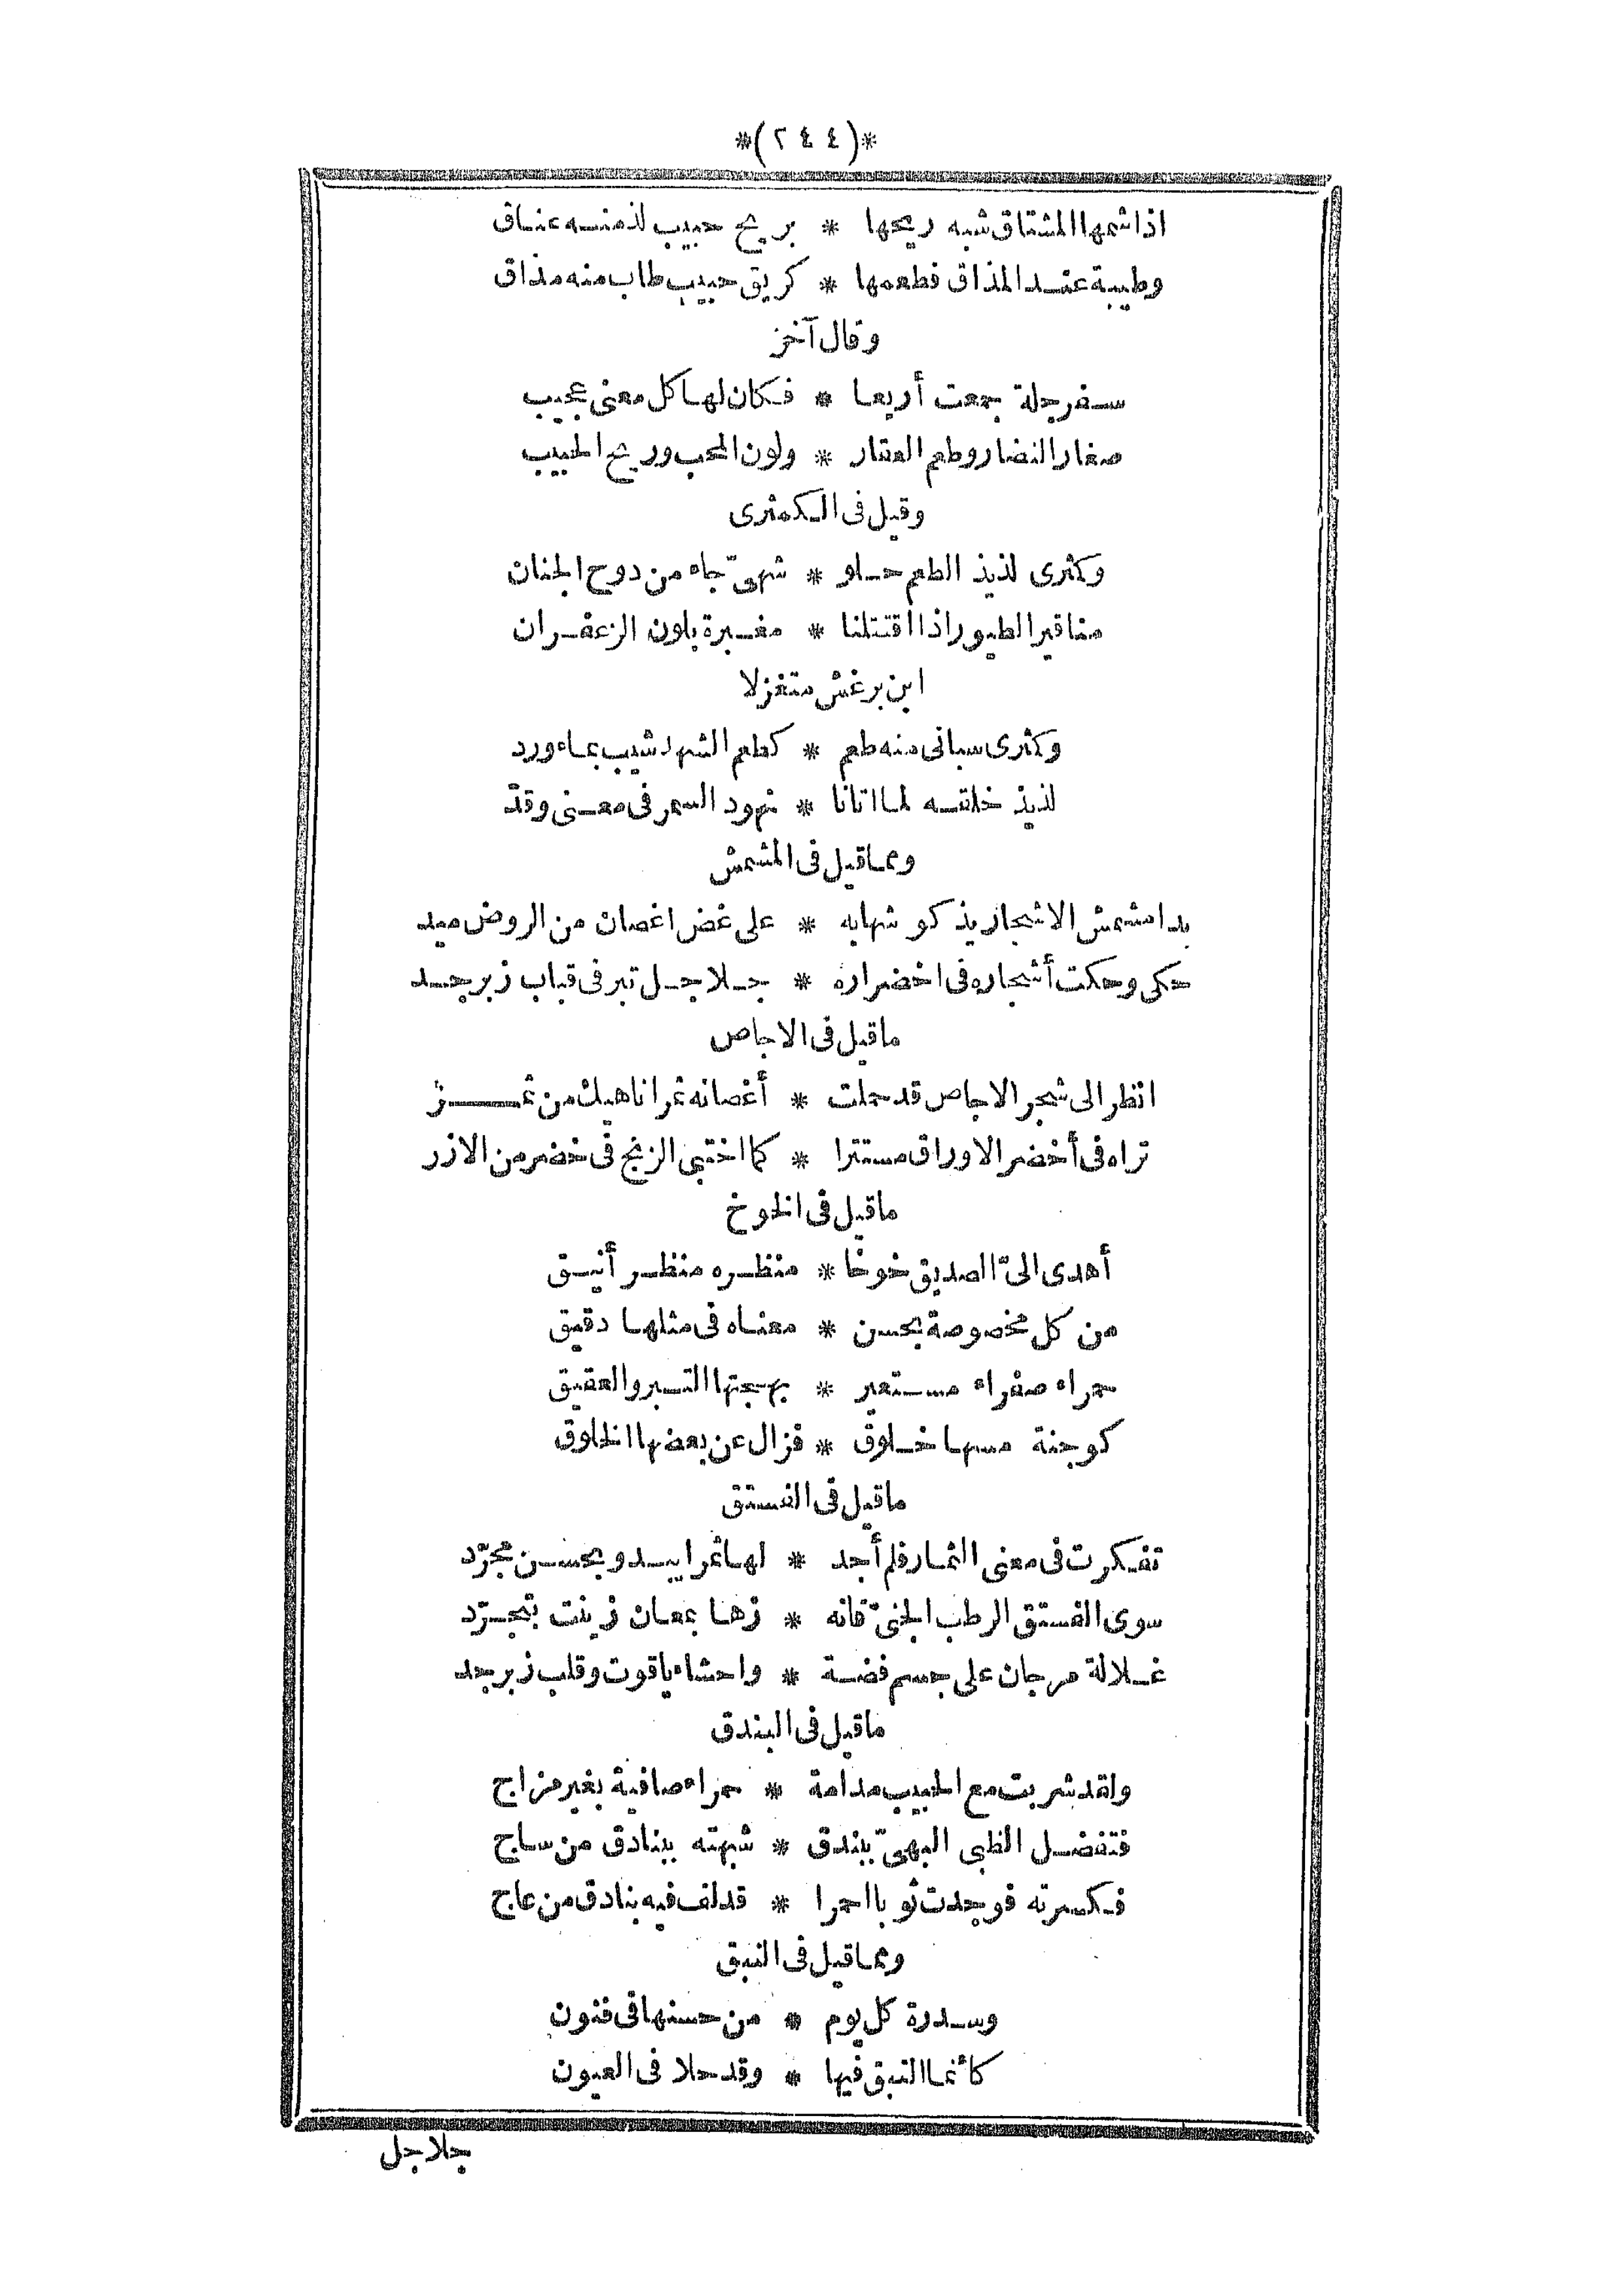 *(٢٤٤)*
اذا شمها المشتاق شبه ريحها * بريح حبيب لذ منه عناق
وطيبة عند المذاق فطعمها * كريق حبيب طاب منه مذاق
وقال آخر
سفرجلة جمعت أربعا * فكان لها كل معنى عجيب
صفار النضار وطعم العقار * ولون المحب وريح الحبيب
وقيل فى الكمثرى
وكمثرى لذيذ الطعم حلو * شهىّ جاء من دوح الجنان
مناقير الطيور اذا اقتتلنا * مغبرة بلون الزعفران
ابن برغش متغزلا
وكمثرى سبانى منه طعم * كطعم الشهد شيب بماء ورد
لذيذ خلقه لما اتانا * نهود السمر فى معنى وقدّ
ومما قيل فى المشمش
بدا مشمش الاشجار يذكو شهابه * على غض اغصان من الروض ميد
حكى وحكت أشجاره فى اخضراره * جلاجل تبر فى قباب زبرجد
ما قيل فى الاجاص
انظر الى شجر الاجاص قد حملت * أغصانه ثمرا ناهيك من ثمر
تراه فى أخضر الاوراق مستترا * كما اختبى الزنج فى خضر من الازر
ما قيل فى الخوخ
أهدى الىّ الصديق خوخا * منظره منظر أنيق
من كل مخصوصة بحسن * معناه فى مثلها دقيق
حمراء صفراء مستعير * بهجتها التبر والعقيق
كوجنة مسها خلوق * فزال عن بعضها الخلوق
ما قيل فى الفستق
تفكرت فى معنى الثمار فلم أجد * لها ثمرا يبدو بحسن مجرّد
سوى الفستق الرطب الجنىّ فانه * زها بمعان زينت بتجرّد
غلالة مرجان على جسم فضة * واحشاء ياقوت وقلب زبرجد
ما قيل فى البندق
ولقد شربت مع الحبيب مدامة * حمراء صافية بغير مزاج
فتفضل الظبى البهىّ ببندق * شبهته ببنادق من ساج
فكسرته فوجدت ثوبا احمرا * قد لف فيه بنادق من عاج
ومما قيل فى النبق
وسدرة كل يوم * من حسنها فى فنون
كأنما النبق فيها * وقد حلا فى العيون
جلاجل